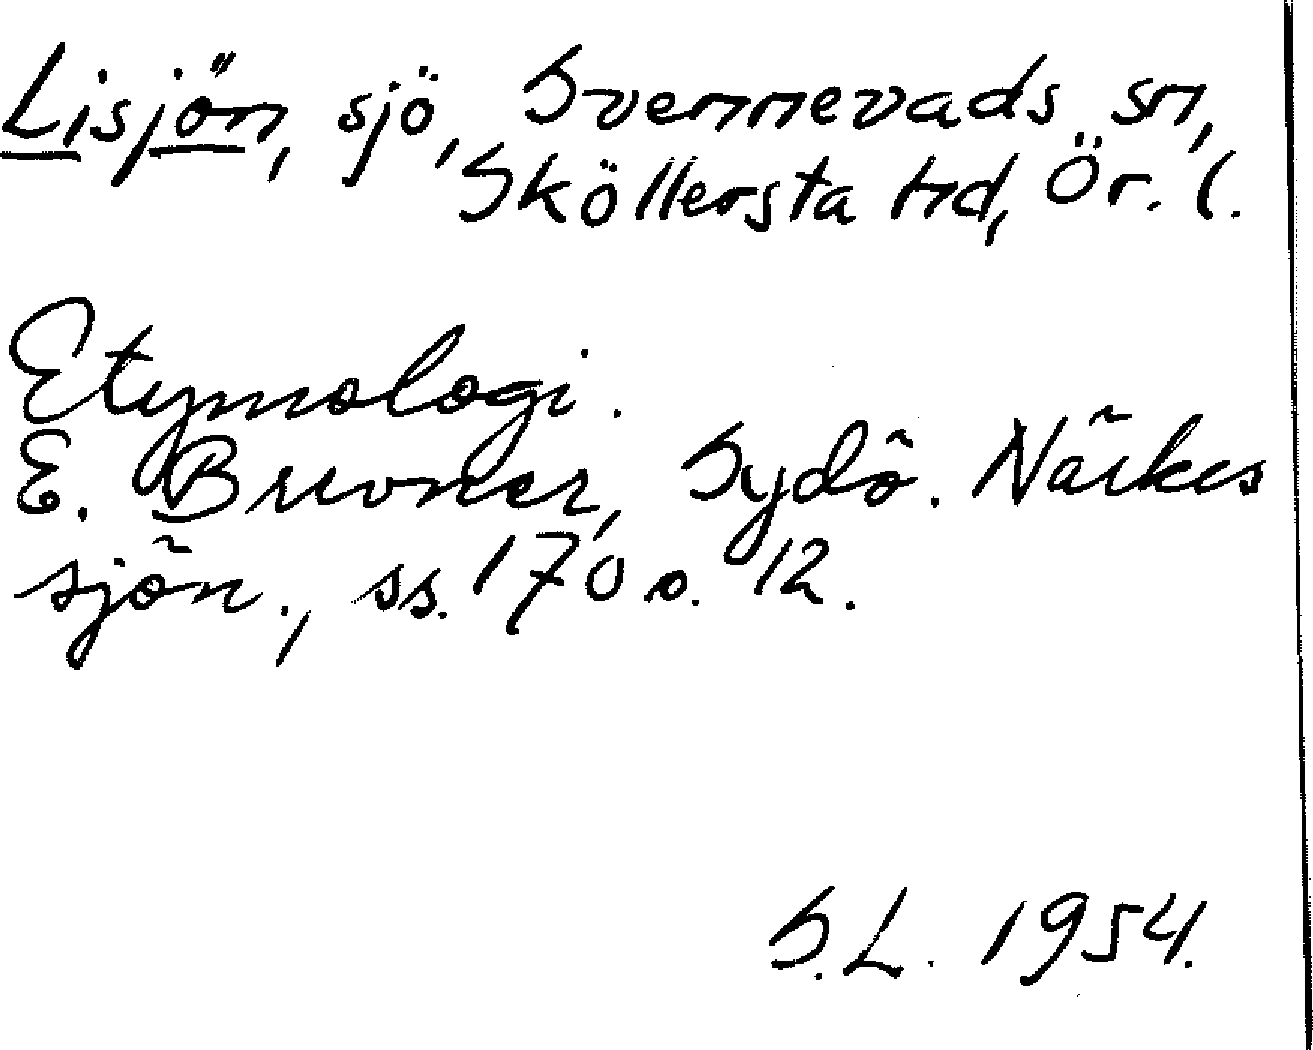 Lisjön, sjö, Svennevads sn,
Sköllersta hd, Ör. l.
Etymologi.
E. Brevner, Sydö. Närkes
sjön., ss. 170 o. 12.
S.L. 1954.